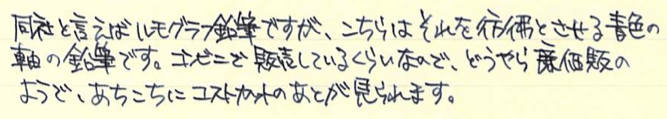 同社と言えばルモグラフ鉛筆ですが、こちらはそれを彷彿とさせる青色の
軸の鉛筆です。コンビニで販売しているくらいなので、どうやら廉価版の
ようで、あちこちにコストカットのあとが見られます。